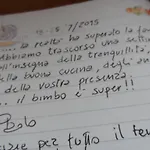 5 7/2015
... la realtà ha superato la fan
Abbiamo trascorso una setti
all'insegna della tranquillità,
della buona cucina, degli an
.. della vostra presenza
... il bimbo è super!!
per tutto il te